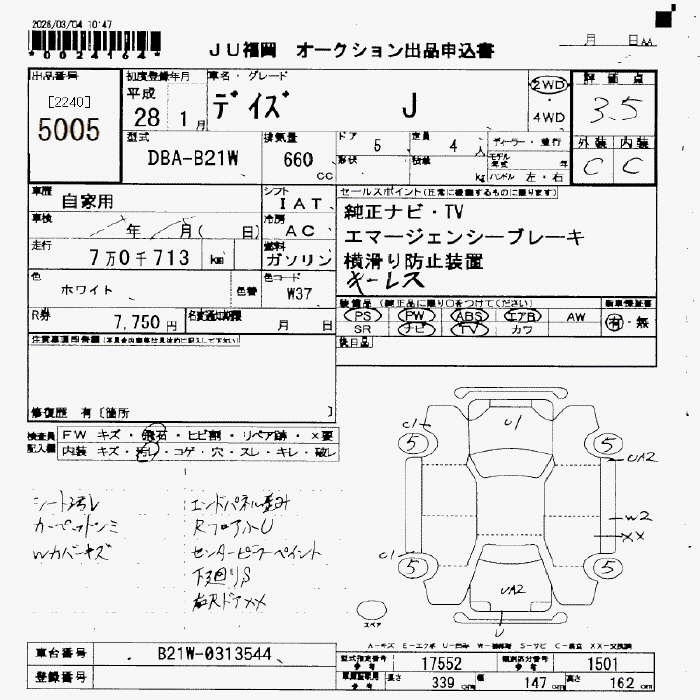 2026/03/04 10:47
*0024164*
JU福岡 オークション出品申込書
月 日
出品番号
[2240]
5005
初度登録年月
平成
28 1月
車名・グレード
デイズ J
2WD
・
4WD
評価点
3.5
外装 内装
C C
型式
DBA-B21W
排気量
660 CC
ドア 5
形状
定員 4 人
積載 kg
ディーラー・並行
モデル年式 年
ハンドル 左・右
車歴
自家用
シフト
IAT
車検
年 月( 日)
冷房
AC
走行
7万0千713 km
燃料
ガソリン
色
ホワイト
色替
色コード
W37
R券
7,750円
名変通知期限
月 日
セールスポイント(正常に機能するものに限ります)
純正ナビ・TV
エマージェンシーブレーキ
横滑り防止装置
キーレス
装備品 (純正品に限り○をつけてください)
新車保証書
PS PW ABS エアB AW
有・無
SR ナビ TV カワ
後日品
注意事項申告欄
修復歴 有 [箇所 ]
検査員
記入欄
FW キズ・飛石・ヒビ割・リペア跡・×要
内装 キズ・汚レ・コゲ・穴・スレ・キレ・破レ
シート汚レ
カーペットシミ
Wカバーキズ
エンドパネル歪み
RフロアハルU
センターピラーペイント
下廻りS
右RドアXX
U1
C1
5
5
UA2
W2
XX
C1
5
5
UA2
U
スペア
A-キズ E-エクボ U-凹み W-補修跡 S-サビ C-腐食 XX-交換済
車台番号
B21W-0313544
登録番号
型式指定番号
参考
17552
類別区分番号
参考
1501
参考
長さ
339 cm
幅
147 cm
高さ
162 cm